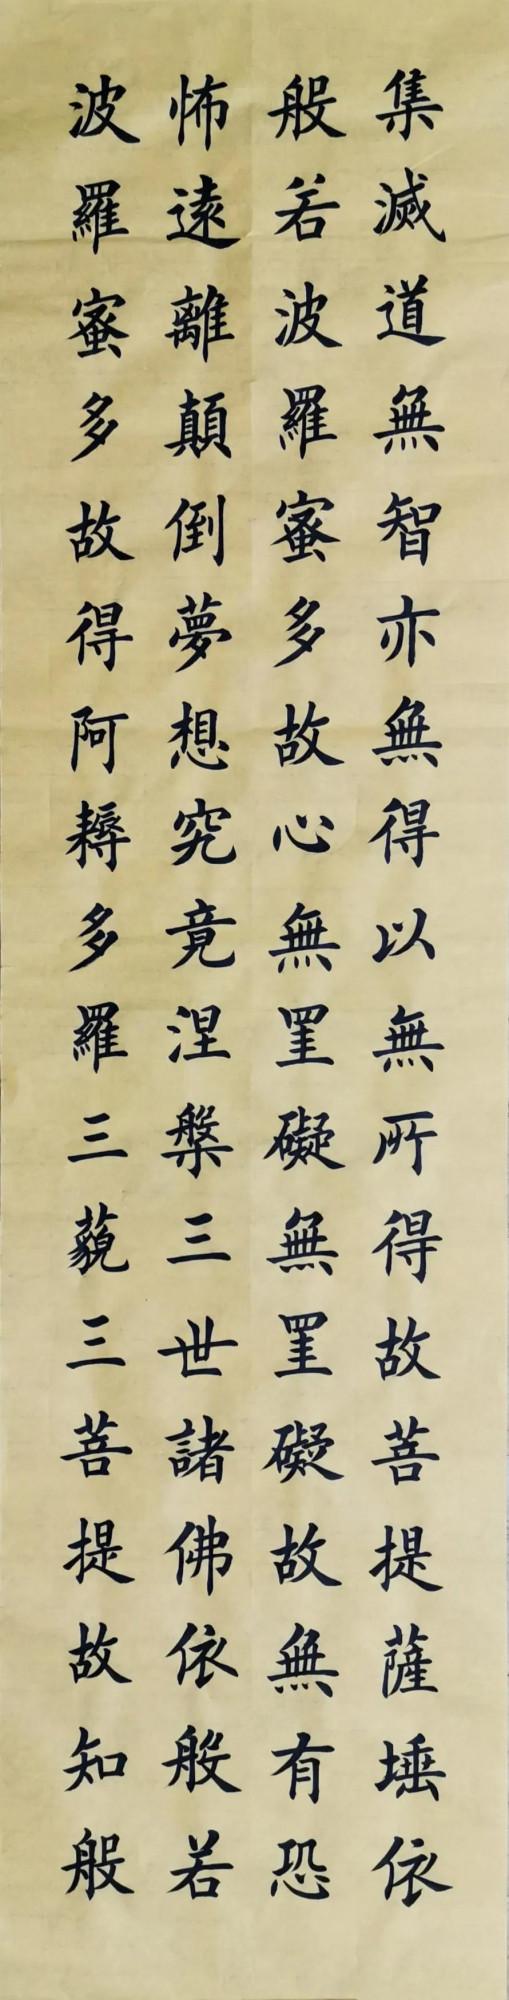 集滅道無智亦無得以無所得故菩提薩埵依
般若波羅蜜多故心無罣礙無罣礙故無有恐
怖遠離顛倒夢想究竟涅槃三世諸佛依般若
波羅蜜多故得阿耨多羅三藐三菩提故知般